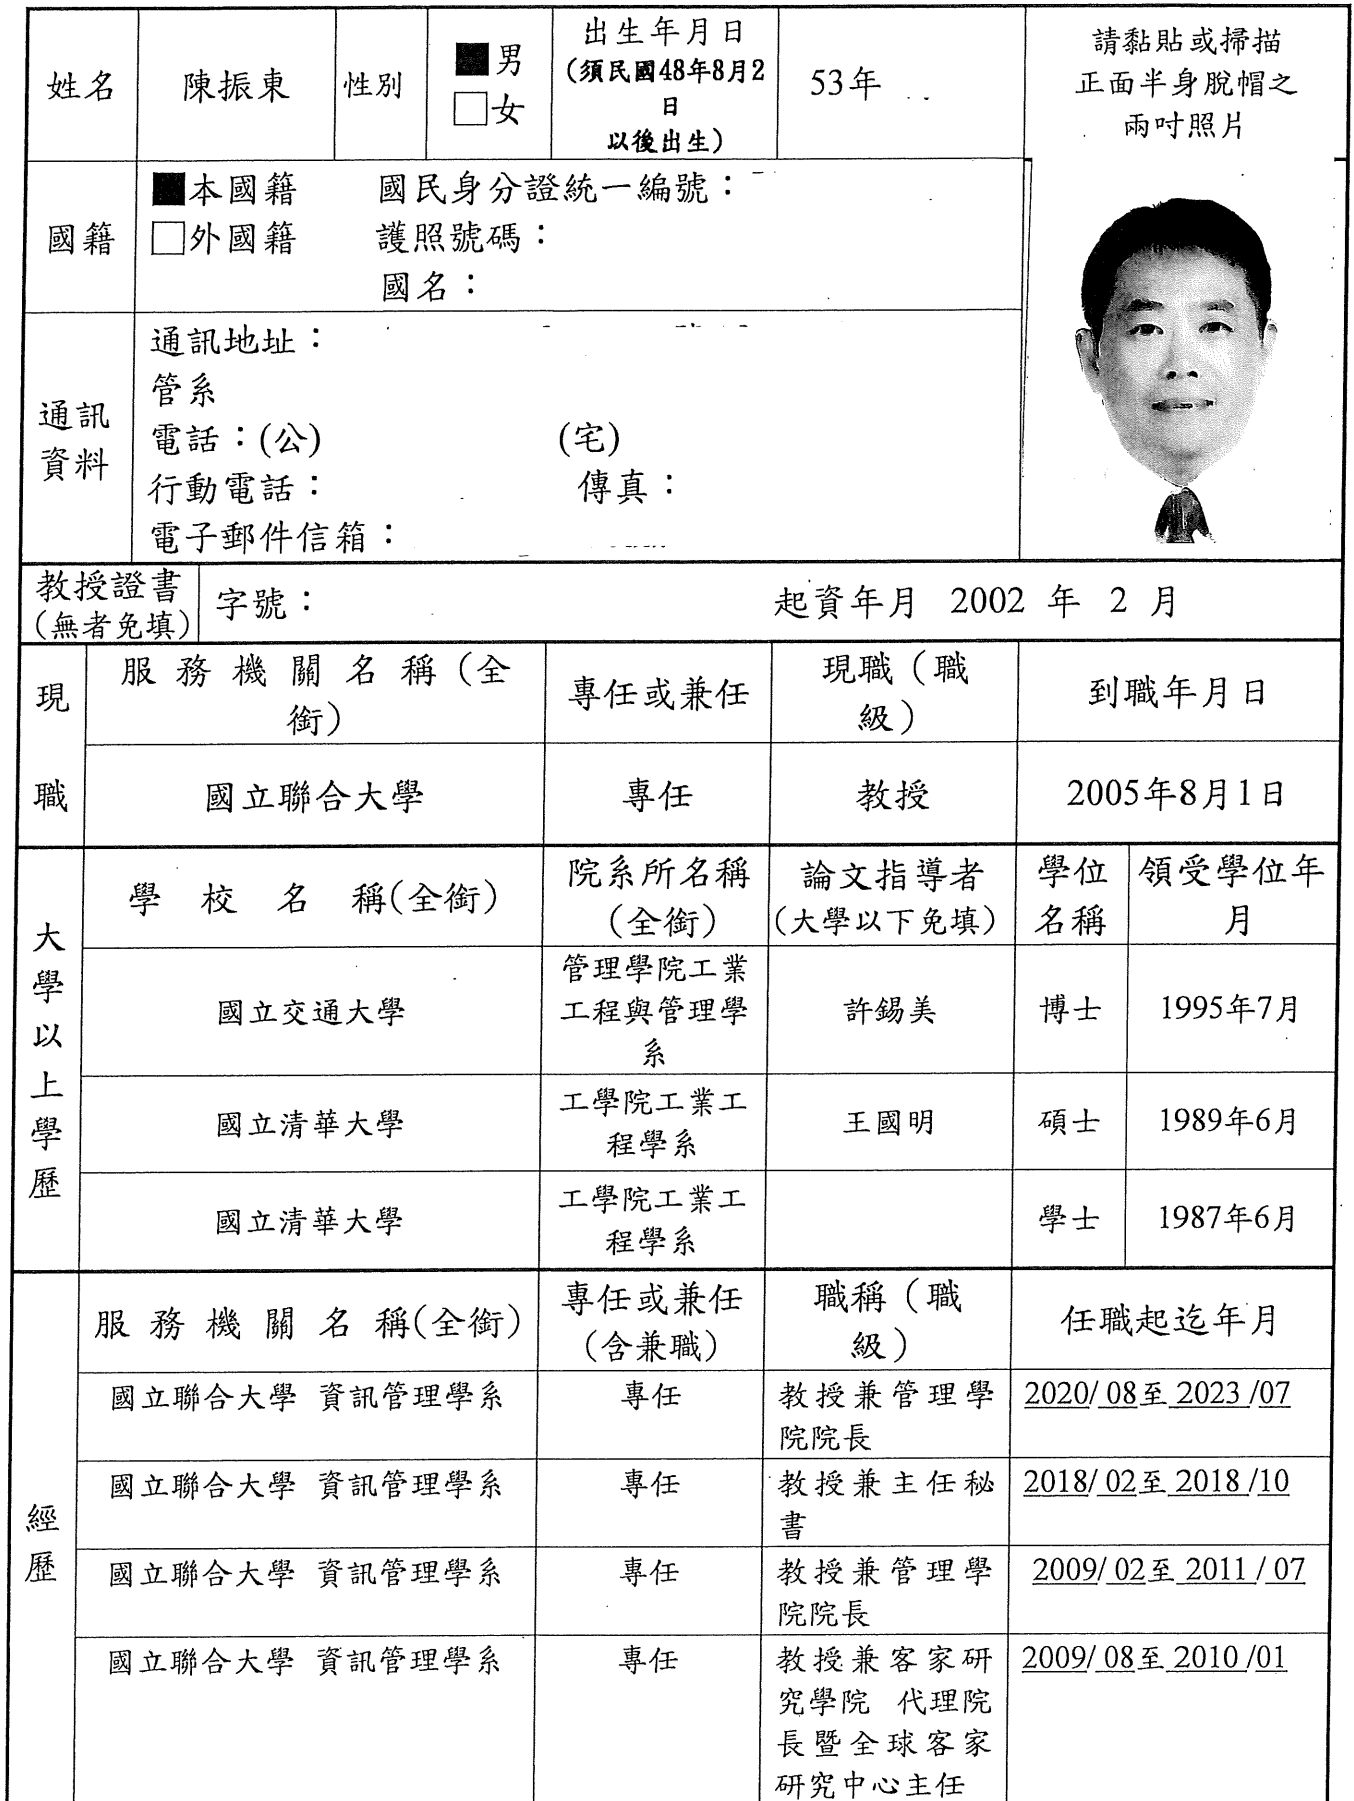 姓名
陳振東
性別
■男
□女
出生年月日
(須民國48年8月2
日
以後出生)
53年
請黏貼或掃描
正面半身脫帽之
兩吋照片
國籍
■本國籍 國民身分證統一編號：
□外國籍 護照號碼：
國名：
通訊
資料
通訊地址：
管系
電話：(公) (宅)
行動電話： 傳真：
電子郵件信箱：
教授證書
(無者免填)
字號： 起資年月 2002 年 2 月
現
職
服務機關名稱（全
銜）
專任或兼任
現職（職
級）
到職年月日
國立聯合大學
專任
教授
2005年8月1日
大
學
以
上
學
歷
學 校 名 稱(全銜)
院系所名稱
(全銜)
論文指導者
(大學以下免填)
學位
名稱
領受學位年
月
國立交通大學
管理學院工業
工程與管理學
系
許錫美
博士
1995年7月
國立清華大學
工學院工業工
程學系
王國明
碩士
1989年6月
國立清華大學
工學院工業工
程學系
學士
1987年6月
經
歷
服務機關名稱(全銜)
專任或兼任
(含兼職)
職稱（職
級）
任職起迄年月
國立聯合大學 資訊管理學系
專任
教授兼管理學
院院長
2020/ 08至 2023 /07
國立聯合大學 資訊管理學系
專任
教授兼主任秘
書
2018/ 02至 2018 /10
國立聯合大學 資訊管理學系
專任
教授兼管理學
院院長
2009/ 02至 2011 / 07
國立聯合大學 資訊管理學系
專任
教授兼客家研
究學院 代理院
長暨全球客家
研究中心主任
2009/ 08至 2010 /01